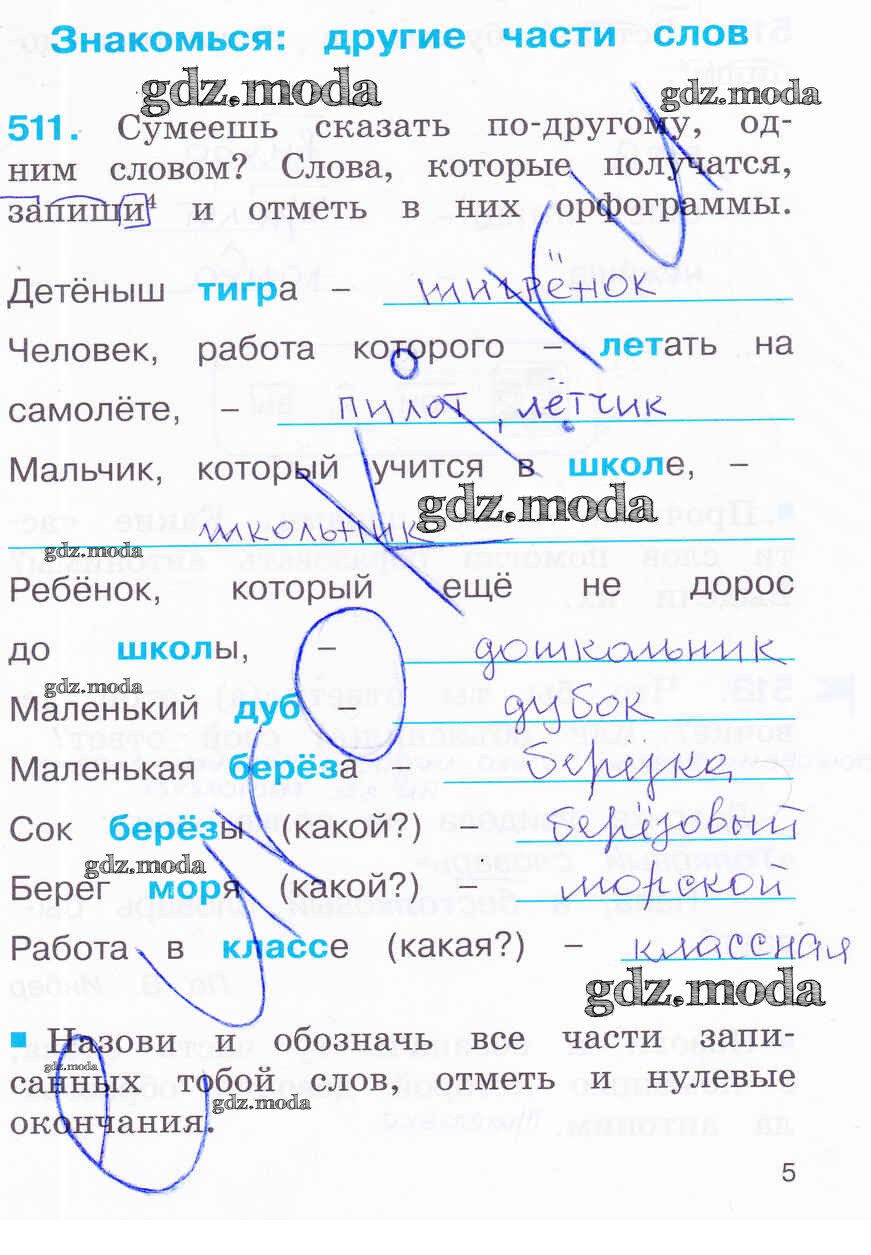 Знакомься: другие части слов
gdz.moda gdz.moda
511. Сумеешь сказать по-другому, од-
ним словом? Слова, которые получатся,
запиши⁴ и отметь в них орфограммы.
Детёныш тигра – тигрёнок
Человек, работа которого – летать на
самолёте, – пилот, лётчик
Мальчик, который учится в школе, –
gdz.moda
школьник
gdz.moda
Ребёнок, который ещё не дорос
до школы, – дошкольник
gdz.moda
Маленький дуб – дубок
Маленькая берёза – берёзка
Сок берёзы (какой?) – берёзовый
gdz.moda
Берег моря (какой?) – морской
Работа в классе (какая?) – классная
gdz.moda
Назови и обозначь все части запи-
gdz.moda
санных тобой слов, отметь и нулевые
gdz.moda
окончания.
5